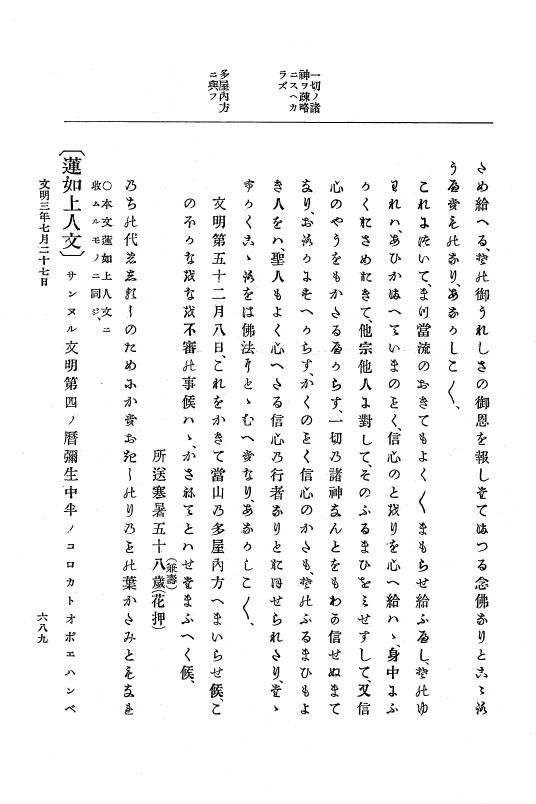 一切ノ諸
神ヲ疎略
ニスヘカ
ラズ
多屋內方
ニ與フ
さめ給へる、その御うれしさの御恩を報したてまつる念佛なりとこゝろ
うへきものなり、あなかしこ〳〵、
これについて、まつ當流のおきてをよく〳〵まもらせ給ふへし、そのい
われハ、あひかまへていまのことく、信心のとほりを心へ給ハゝ、身中にふ
かくおさめおきて、他宗他人に對して、そのふるまひをみせすして、又信
心のやうをもかたるへからす、一切の諸神なんとをもわか信せぬまて
なり、おろかにすへからす、かくのことく信心のかたも、そのふるまひもよ
き人をハ、聖人もよく心へたる信心の行者なりとおほせられたり、たゝ
ふかくこゝろをは佛法にとゝむへきなり、あなかしこ〳〵、
文明第五十二月八日、これをかきて當山の多屋內方へまいらせ候、こ
のほかなほなほ不審の事候ハゝ、かさねてとハせたまふへく候、
所送寒暑五十八歲(花押)
(兼壽)
のちの代のしるしのためにかきおきしのりのことの葉かたみともなれ
○本文蓮如上人文ニ
收ムルモノニ同ジ、
〔蓮如上人文〕サンヌル文明第四ノ曆彌生中半ノコロカトオボエハンベ
文明三年七月二十七日
六八九